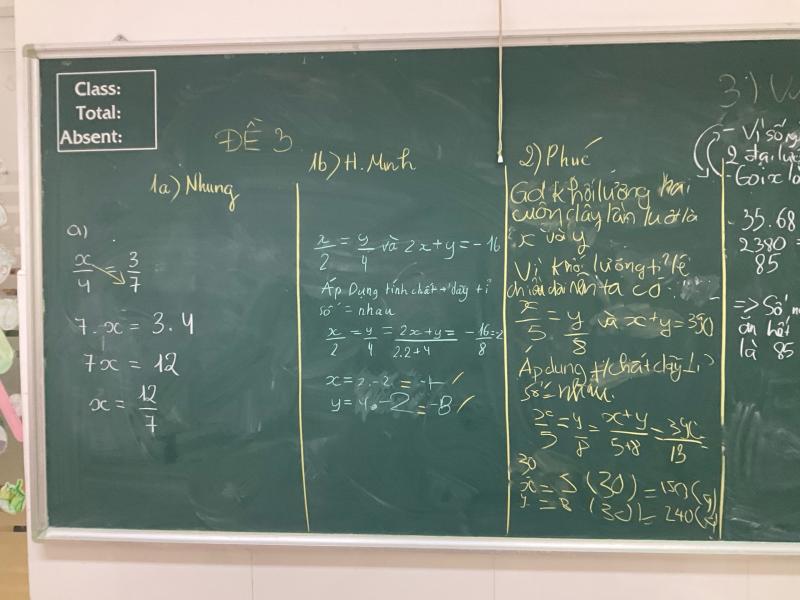 Class:
Total:
Absent:
ĐỀ 3
1a) Nhung
a)
x/4 3/7
7.x = 3.4
7x = 12
x = 12/7
1b) H.Minh
x/2 = y/4 và 2x+y = -16
Áp Dụng tính chất dãy tỉ
số = nhau
x/2 = y/4 = 2x+y/2.2+4 = -16/8 = -2
x = 2.-2 = -4 ✓
y = 4.-2 = -8 ✓
2) Phúc
Gọi khối lượng hai
cuộn dây lần lượt là
x và y
Vì khối lượng tỉ lệ
chiều dài nên ta có
x/5 = y/8 và x+y = 390
Áp dụng t/chất dãy tỉ
số = nhau.
x/5 = y/8 = x+y/5+8 = 390/13
30
x = 5 (30) = 150(g)
y = 8 (30) = 240(g)
3)
- Vì số
2 đại lư
- Gọi x là
35.68
2380 =
85
=> Số
là 85